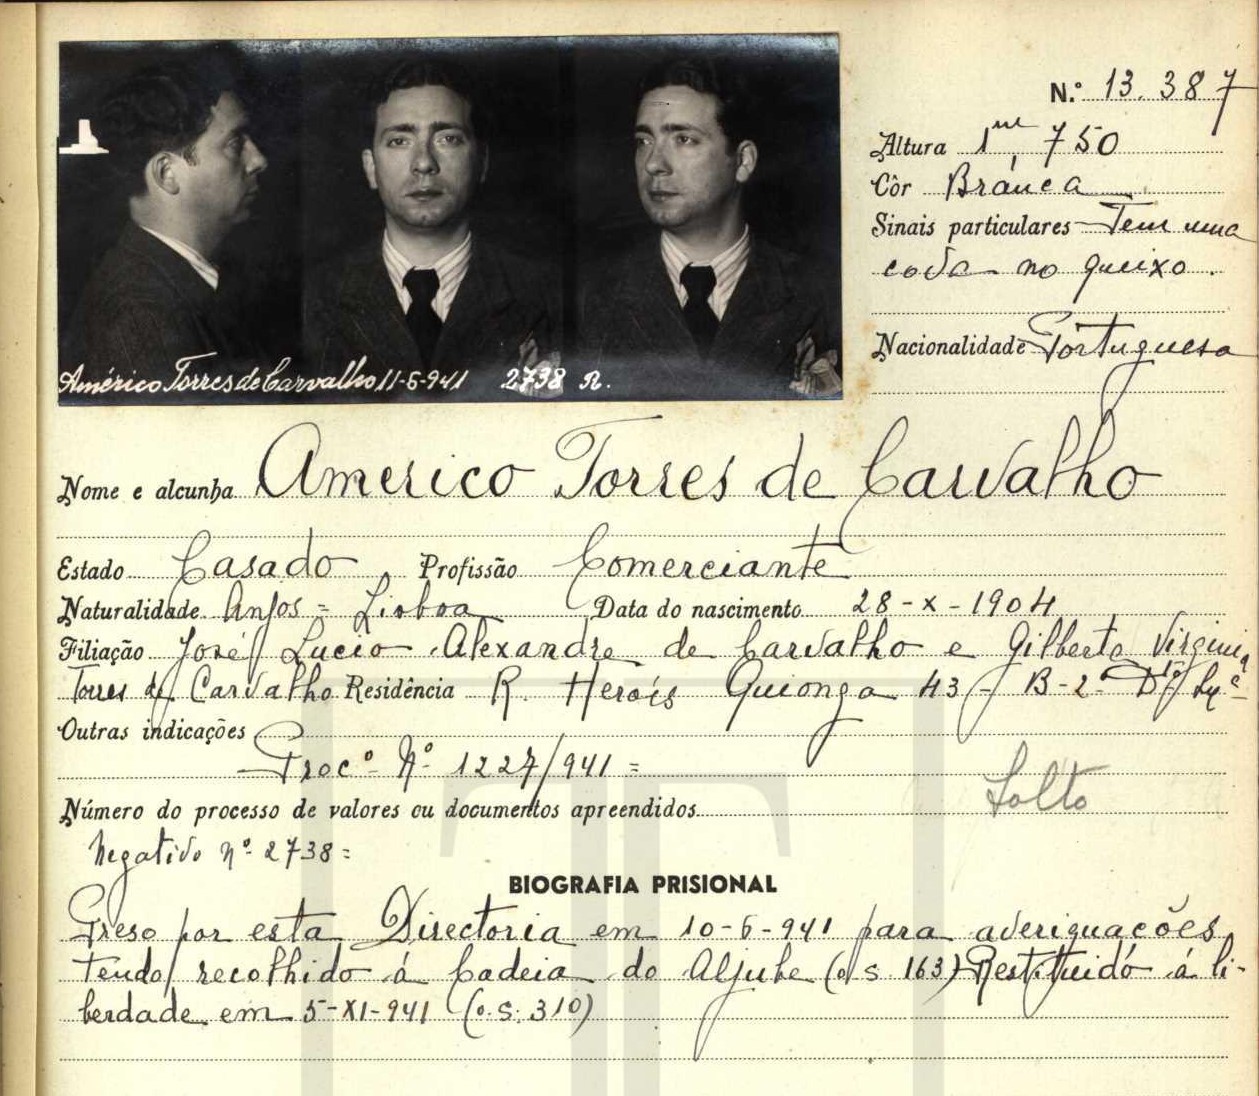 Américo Torres de Carvalho 11-6-941 2738 R.
N.º 13.387
Altura 1m,750
Côr Branca
Sinais particulares Tem uma
cova no queixo.
Nacionalidade Portuguesa
Nome e alcunha Americo Torres de Carvalho
Estado Casado Profissão Comerciante
Naturalidade Anjos = Lisboa Data do nascimento 28-X-1904
Filiação José Lucio Alexandre de Carvalho e Gilberta Virginia
Torres de Carvalho Residência R. Herois Quionga 43-B-2º Dtº Lxª
Outras indicações
Procº Nº 1227/941 =
Solto
Número do processo de valores ou documentos apreendidos
Negativo nº 2738 =
BIOGRAFIA PRISIONAL
Preso por esta Directoria em 10-6-941 para averiguações,
tendo recolhido á Cadeia do Aljube (o s 163) Restituido á li-
berdade em 5-XI-941 (o.s. 310)